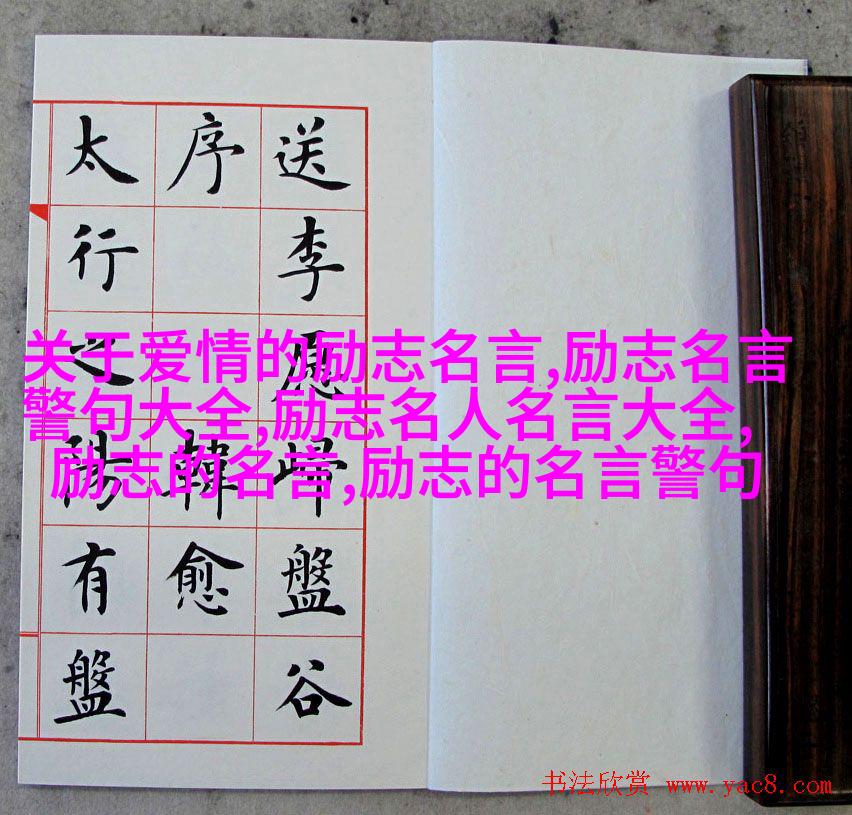 送李愿歸盤谷
序 韓愈
太行之陽有盤
关于爱情的励志名言,励志名言
警句大全,励志名人名言大全,
励志的名言,励志的名言警句
书法欣赏 www.yac8.com